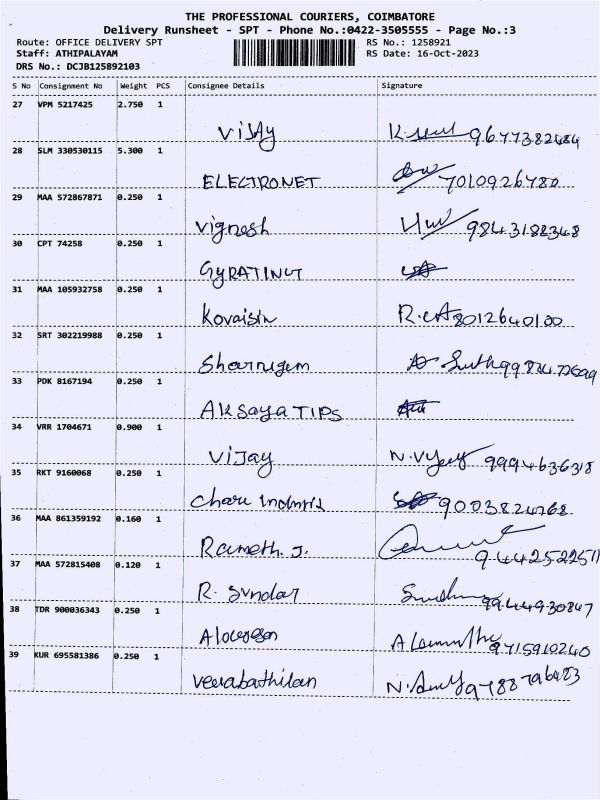 THE PROFESSIONAL COURIERS, COIMBATORE
Delivery Runsheet - SPT - Phone No.:0422-3505555 - Page No.:3
Route: OFFICE DELIVERY SPT RS No.: 1258921
Staff: ATHIPALAYAM RS Date: 16-Oct-2023
DRS No.: DCJB125892103
S No Consignment No Weight PCS Consignee Details Signature
27 VPM 5217425 2.750 1
Vijay
28 SLM 330530115 5.300 1
ELECTRONET 7010926780
29 MAA 572867871 0.250 1
Vignesh 9843188348
30 CPT 74258 0.250 1
31 MAA 105932758 0.250 1
Kovaisin 8012640100
32 SRT 302219988 0.250 1
33 PDK 8167194 0.250 1
AKSaya TIPS
34 VRR 1704671 0.900 1
Vijay 9994636318
35 RKT 9160068 0.250 1
Charu
36 MAA 861359192 0.160 1
Ramesh. J. 9442522511
37 MAA 572815408 0.120 1
R. Sundar 9944930847
38 TDR 900036343 0.250 1
9715910240
39 KUR 695581386 0.250 1
Veerabathilan